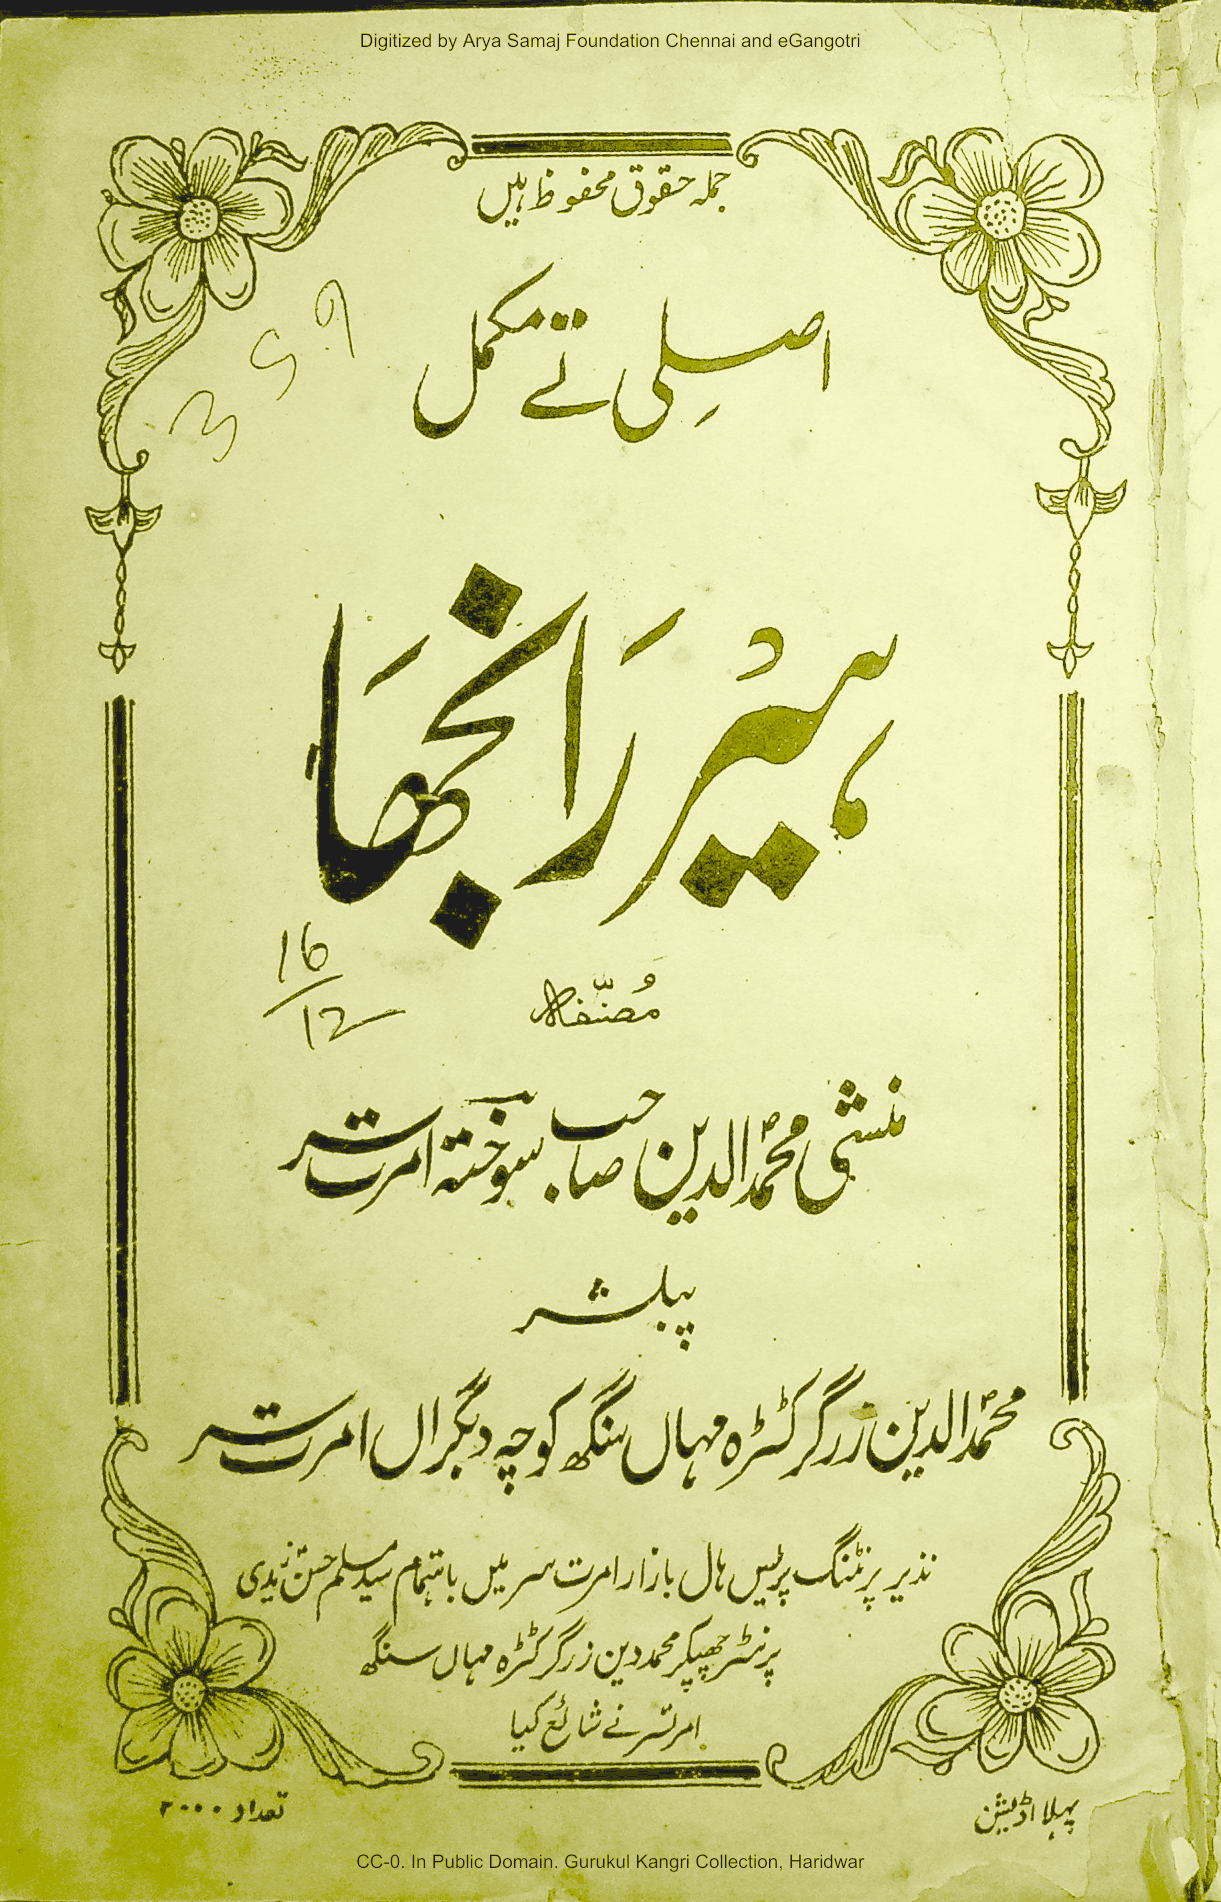 Digitized by Arya Samaj Foundation Chennai and eGangotri
جملہ حقوق محفوظ ہیں
اصلی تے مکمل
359
ہیر رانجھا
16/12
مصنفہ
منشی محمد الدین صاحب سوختہ امرتسر
پبلشر
محمد الدین زرگر کٹڑہ مہاں سنگھ کوچہ دبگراں امرتسر
نذیر پرنٹنگ پریس ہال بازار امرتسر میں باہتمام سید مسلم حسن زیدی
پرنٹر چھپکر محمد دین زرگر کٹڑہ مہاں سنگھ
امرتسر نے شائع کیا
پہلا اڈیشن
تعداد ۲۰۰۰
CC-0. In Public Domain. Gurukul Kangri Collection, Haridwar